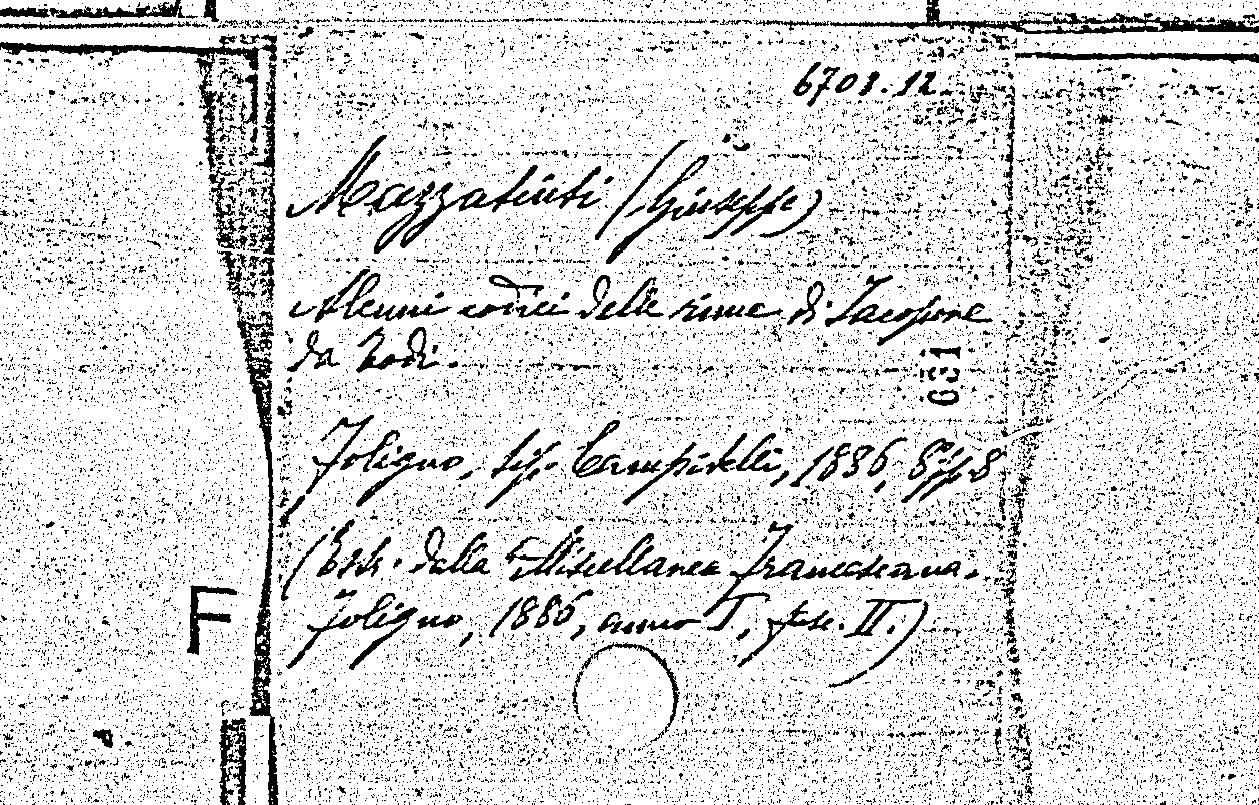 6703.12.
Mazzatinti (Giuseppe)
Alcuni codici delle rime di Jacopone
da Todi.
031
Foligno, tip. Campitelli, 1886, 8º, pp. 8
(Estr. dalla Miscellanea Francescana.
F
Foligno, 1886, anno I, fasc. II.)